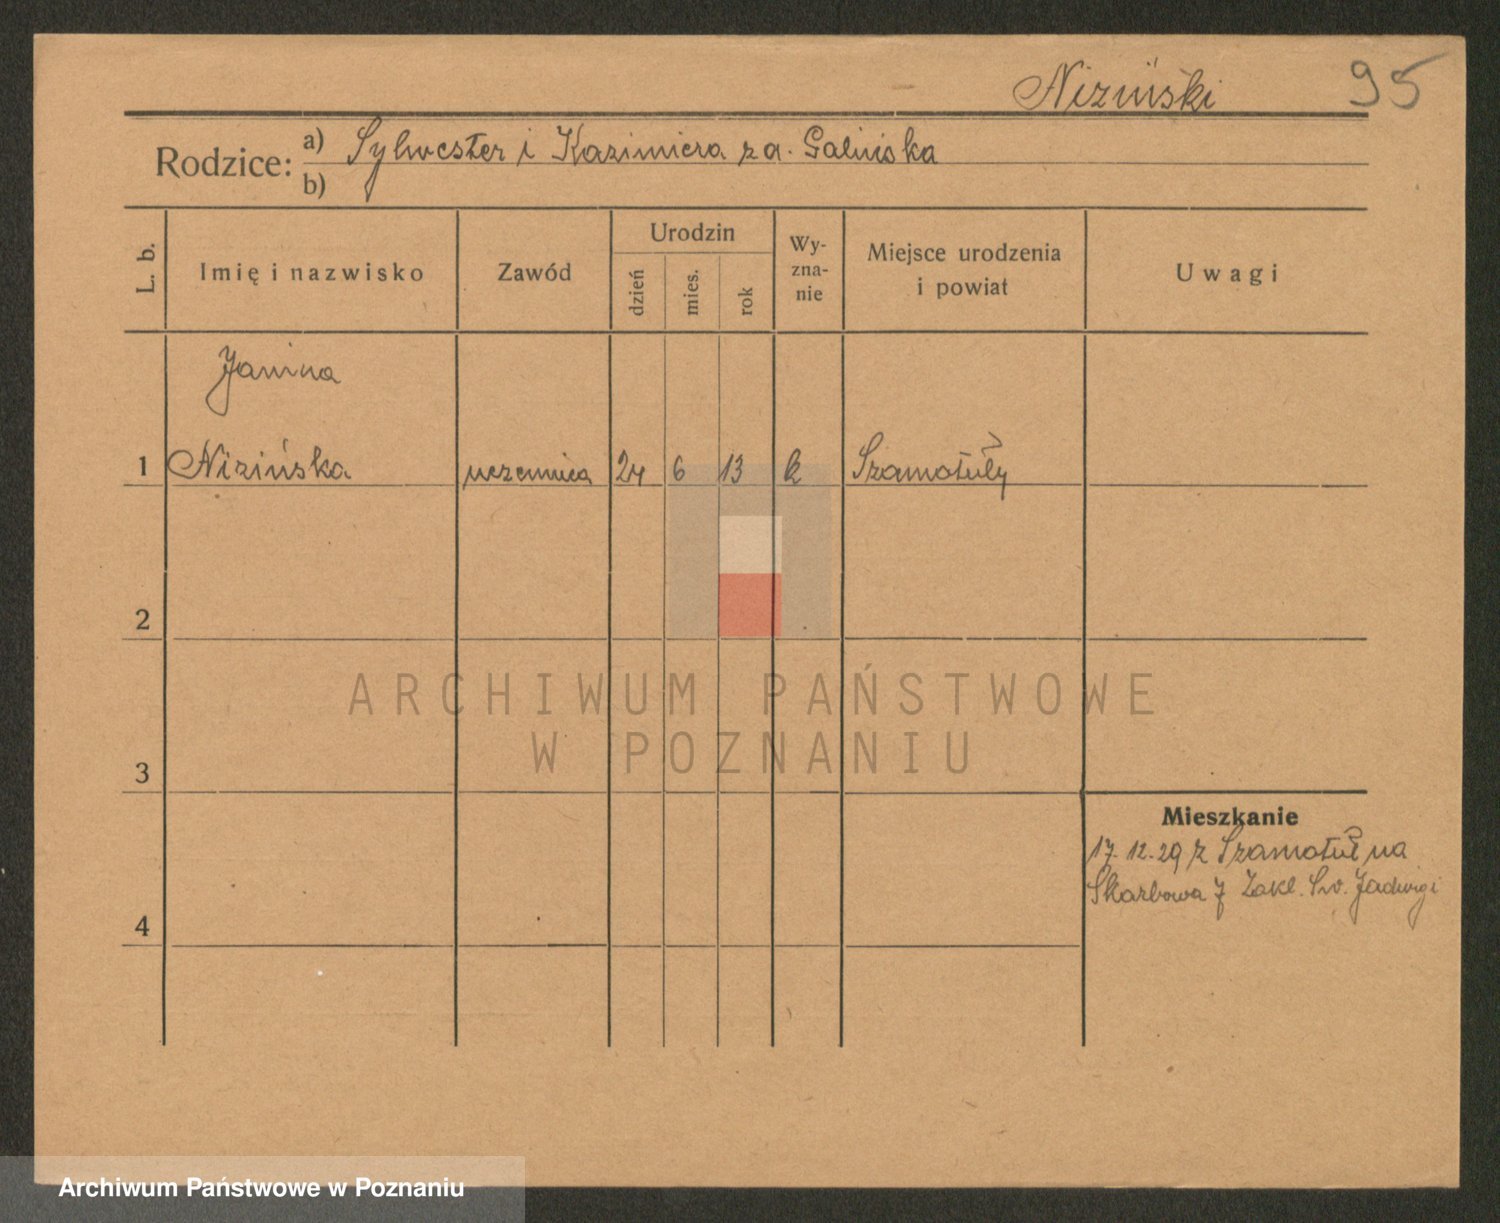 Niziński 95
Rodzice: a) Sylwester i Kazimiera za. Galińska
b)
L. b.
Imię i nazwisko
Zawód
Urodzin
dzień
mies.
rok
Wy-
zna-
nie
Miejsce urodzenia
i powiat
Uwagi
Janina
1 Nizińska uczennica 24 6 13 k Szamotuły
2
3
4
Mieszkanie
17.12.29 z Szamotuł na
Skarbowa 7 Zakł. Św. Jadwigi
ARCHIWUM PAŃSTWOWE
W POZNANIU
Archiwum Państwowe w Poznaniu